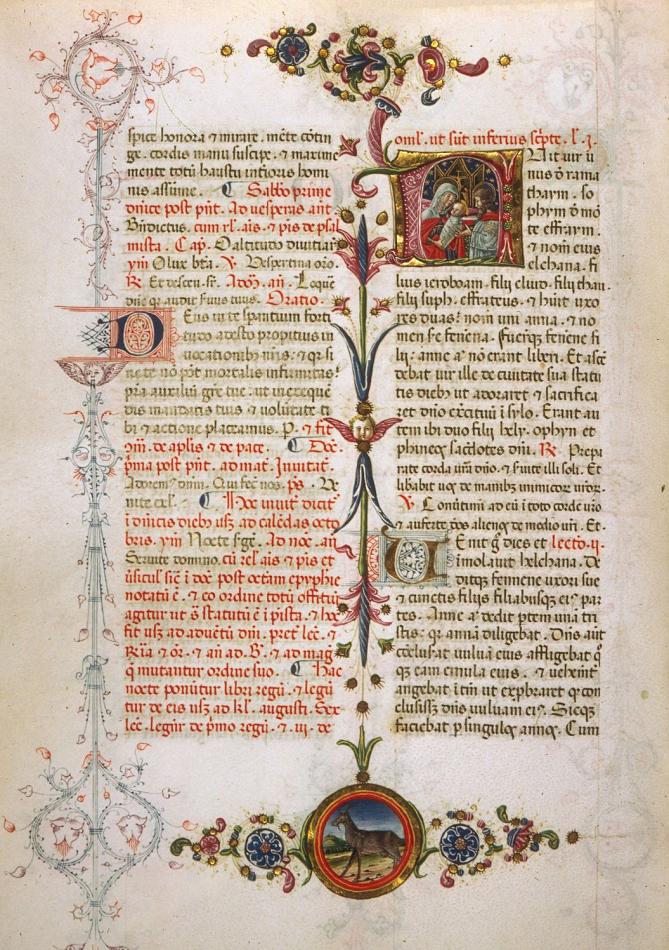 spice honora & mirare. mēte cōtin
ge. cordis manu suscipe. & maxime
mente totū haustu intīoris homi
nis assume. ¶ Sabbō prime
dnīce post pnt. Ad vesperas ant.
Bndictus. cum rl. ais. & pis de psal
mista. Cap. O altitudo divitiar
ym Olux btā. V. Vespertina oro.
R. Et descen. sr. Adoz. añ. Loque
dnē qr audit suus tuus. Oratio.
Deus in te sperantium forti
tudo adesto propitius in
vocationibz nris. & qr si
ne te nō pōt mortalis infirmitas
pra auxiliū grē tue. ut in exeque
dis mandatis tuis & volūtate ti
bi & actione placeamus. P. & fit
9m. de aplis & de pace. ¶ Doc.
pma post pnt. ad mat. Invitat.
Adorem9 dnm. Qui fec nos. ps. Ve
nite exl. ¶ Hoc invit dicit
i dnicis diebz usz ad calēdas octo
bris. ym Nocte srge. Ad noc. an
Servite domino. cū rel ais & pis et
ūsicul sic i doc post octam epyphie
notatū ē. & eo ordine totū offitiū
agitur ut s statutū ē i pista. & hoc
fit usz ad adventū dni. pret lec. &
Rria & or. & an ad. B. & ad mag
q mutantur ordine suo. ¶ Hac
nocte ponūtur libri regū. & legū
tur de eis usz ad kl. augusti. Sex
lec. legūtr de pmo regū. & iii. de
oml. ut sūt inferius scpte. l. i.
Fuit vir ū
nus d rama
tham. so
phym d mō
te effraym.
& nomen eius
elchana. fi
lius ieroboam. filij eliud. filij thau.
filij suph. effrateus. & hūit uxo
res duas. nom uni anna. & no
men sc fenena. Fuerūqz fenene fi
lij: anne aū nō erant liberi. Et ascē
debat vir ille de civitate sua statu
tis diebz ut adoraret & sacrifica
ret dno exercituū i sylo. Erant au
tem ibi duo filij hely. ophyn et
phinees sacdotes dni. R. Prepa
rate corda vra dno. & servite illi soli. Et
libabit vos de manibz inimicor vror.
V. Convtimi ad eū i toto corde vro
& auferte deos alienos de medio vri. Et.
Venit g dies et lectio. ii.
imolavit helchana. De
ditqz fennene uxori sue
& cunctis filijs filiabusqz ei9 par
tes. Anne aū dedit ptem una tri
stis: qr annā diligebat. Dns aūt
cōclusat vulvā eius. affligebat q
qz eam emula eius. & vehemt
angebat itm ut exprobraret qr con
clusissz dns vulvam ei9. Sicqz
faciebat p singulos annos. Cum